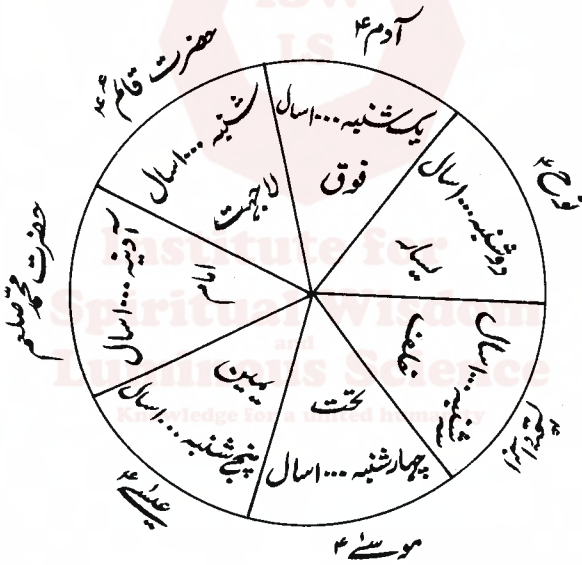 آدم ۴
یکشنبہ ۱۰۰۰ سال
فوق
نوح ۴
دوشنبہ ۱۰۰۰ سال
یسار
ابراہیم ۴
سہ شنبہ ۱۰۰۰ سال
خلف
موسےٰ ۴
چہارشنبہ ۱۰۰۰ سال
تحت
عیسےٰ ۴
پنجشنبہ ۱۰۰۰ سال
یمین
حضرت محمد صلعم
آدینہ ۱۰۰۰ سال
امام
حضرت قائم ۴
شنبہ ۱۰۰۰ سال
لا جہت
ISW
LS
Institute for
Spiritual Wisdom
and
Luminous Science
Knowledge for a united humanity